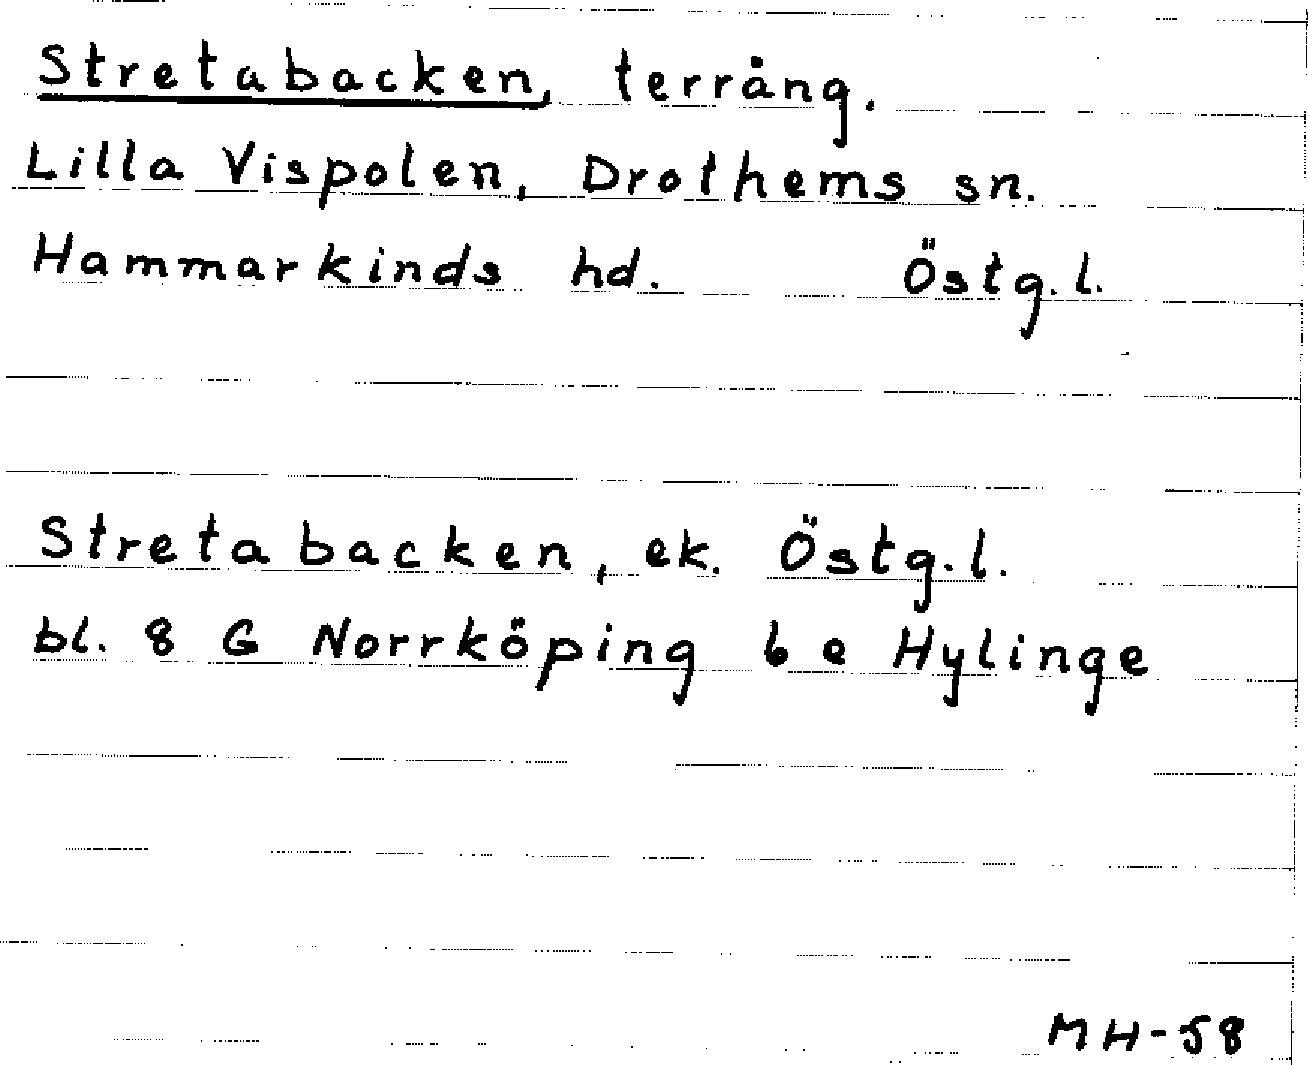 Stretabacken, terräng.
Lilla Vispolen, Drothems sn.
Hammarkinds hd. Östg.l.
Stretabacken, ek. Östg.l.
bl. 8 G Norrköping 6 e Hylinge
MH-58